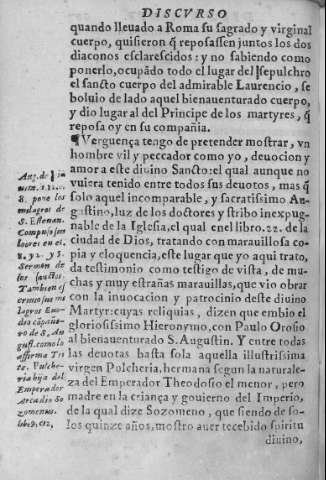 DISCVRSO
quando lleuado a Roma su sagrado y virginal
cuerpo, quisieron q̃ reposassen juntos los dos
diaconos esclarescidos: y no sabiendo como
ponerlo, ocupãdo todo el lugar del sepulchro
el sancto cuerpo del admirable Laurencio, se
boluio de lado aquel bienauenturado cuerpo,
y dio lugar al del Principe de los martyres, q̃
reposa oy en su compañia.
¶Verguença tengo de pretender mostrar, vn
hombre vil y peccador como yo, deuocion y
amor a este diuino Sancto: el qual aunque no
vuiera tenido entre todos sus deuotos, mas q̃
solo aquel incomparable, y sacratissimo Au-
gustino, luz de los doctores y stribo inexpug-
nable de la Iglesia, el qual enel libro. 22. de la
ciudad de Dios, tratando con marauillosa co-
pia y eloquencia, este lugar que yo aqui trato,
da testimonio como testigo de vista, de mu-
chas y muy estrañas marauillas, que vio obrar
con la inuocacion y patrocinio deste diuino
Martyr: cuyas reliquias, dizen que embio el
gloriosissimo Hieronymo, con Paulo Orosio
al bienauenturado S. Augustin. Y entre todas
las deuotas basta sola aquella illustrissima
virgen Polcheria, hermana segun la naturale-
za del Emperador Theodosio el menor, pero
madre en la criança y gouierno del Imperio,
de la qual dize Sozomeno, que siendo de so-
los quinze años, mostro auer tecebido spiritu
diuino,
Aug. de
8. pone los
milagros de
S. Esteuan.
lib. 9. c. 2,
S. Esteuan.
Sermon de
Tambien el
lagros Euo-
do de S. Au-
gust. como lo
affirma Tri-
te. Pulche-
ria hija del
Emperador
Arcadio So
zomenus.